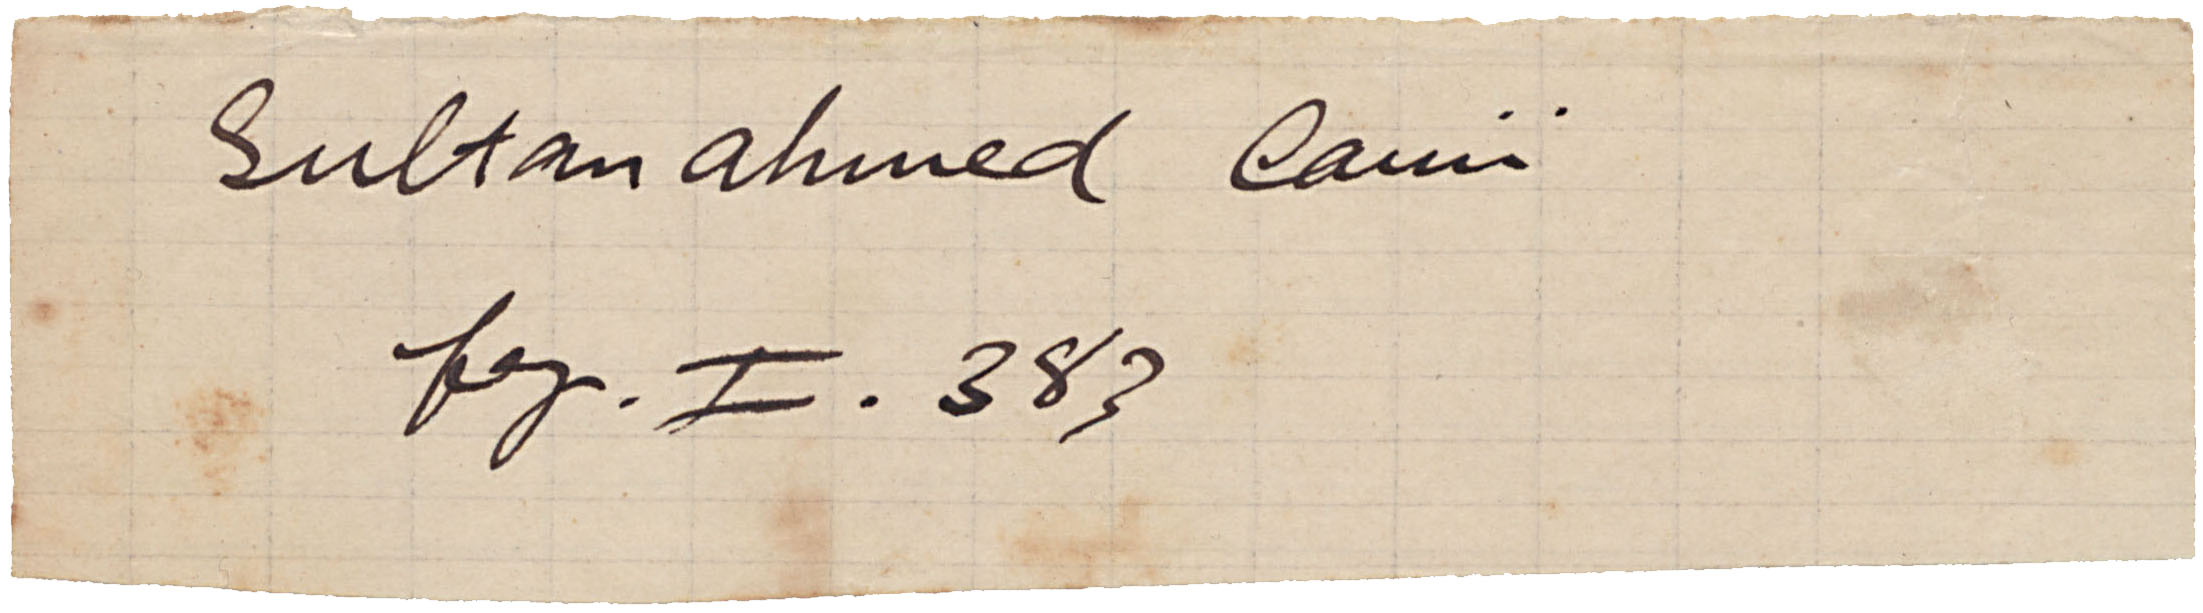 Sultan ahmed Camii
I. 383